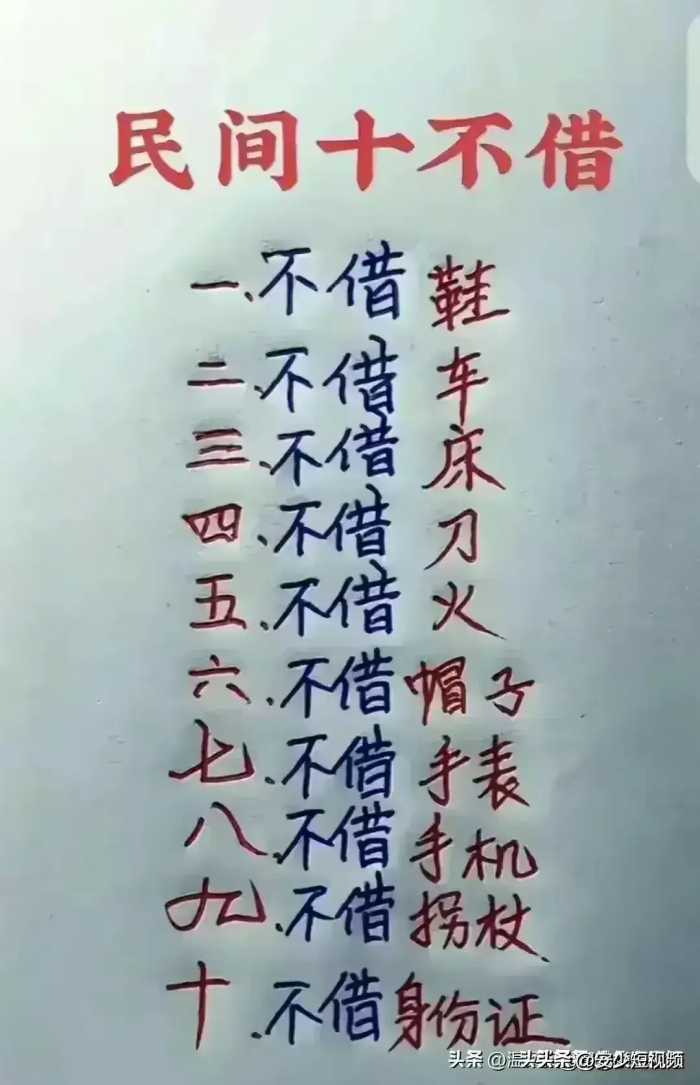 民间十不借
一、不借鞋
二、不借车
三、不借床
四、不借刀
五、不借火
六、不借帽子
七、不借手表
八、不借手机
九、不借拐杖
十、不借身份证
头条 @温 头条 @安少短视频